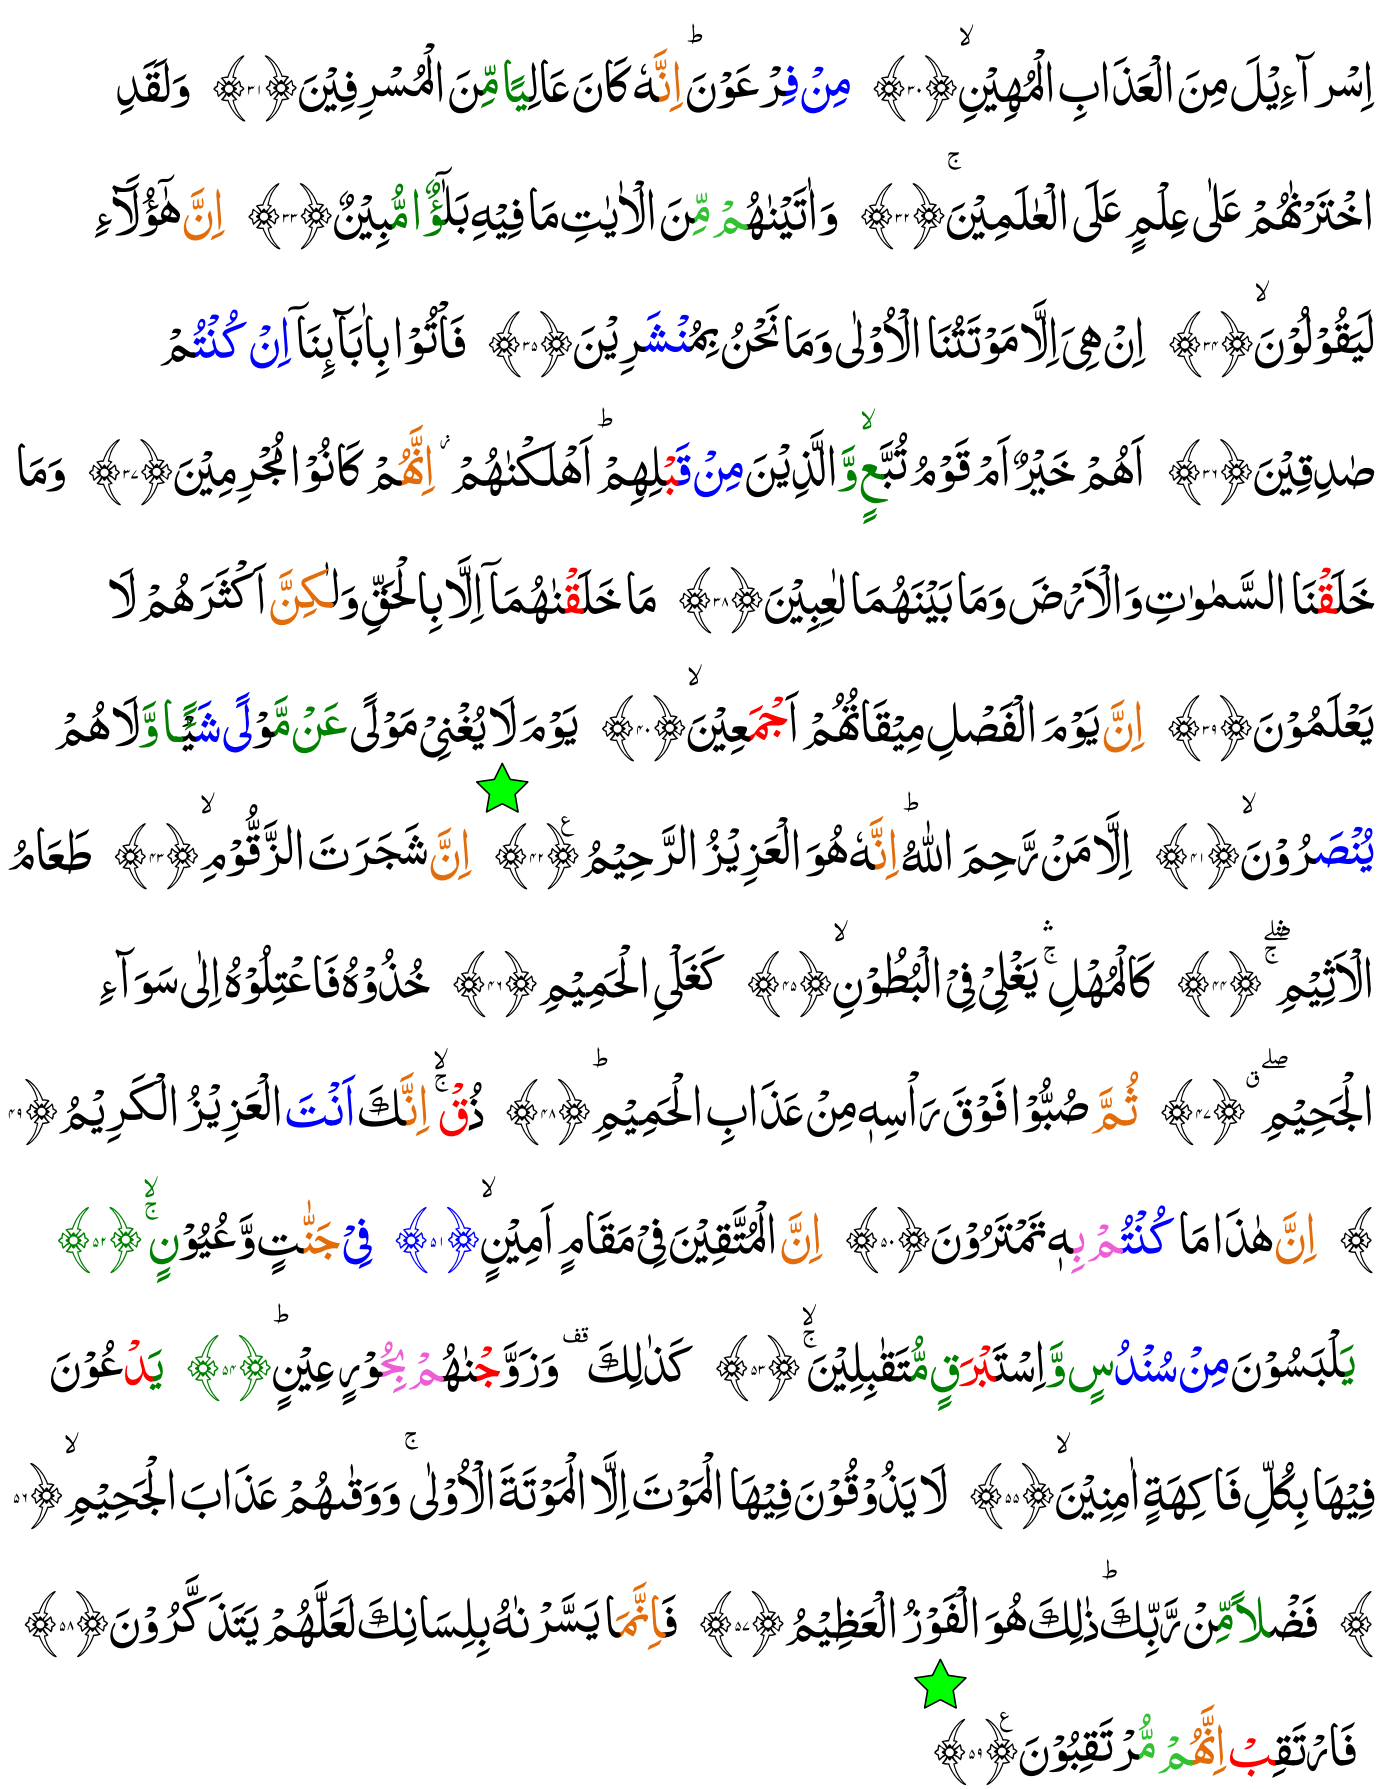 اِسْرَآءِيْلَ مِنَ الْعَذَابِ الْمُهِيْنِۙ﴿۳۰﴾ مِنْ فِرْعَوْنَؕ اِنَّهٗ كَانَ عَالِيًا مِّنَ الْمُسْرِفِيْنَ﴿۳۱﴾ وَلَقَدِ
اخْتَرْنٰهُمْ عَلٰى عِلْمٍ عَلَى الْعٰلَمِيْنَۚ﴿۳۲﴾ وَاٰتَيْنٰهُمْ مِّنَ الْاٰيٰتِ مَا فِيْهِ بَلٰٓؤٌا مُّبِيْنٌ﴿۳۳﴾ اِنَّ هٰٓؤُلَآءِ
لَيَقُوْلُوْنَۙ﴿۳۴﴾ اِنْ هِىَ اِلَّا مَوْتَتُنَا الْاُوْلٰى وَمَا نَحْنُ بِمُنْشَرِيْنَ﴿۳۵﴾ فَاْتُوْا بِاٰبَآئِنَاۤ اِنْ كُنْتُمْ
صٰدِقِيْنَ﴿۳۶﴾ اَهُمْ خَيْرٌ اَمْ قَوْمُ تُبَّعٍۙ وَّالَّذِيْنَ مِنْ قَبْلِهِمْؕ اَهْلَكْنٰهُمْؗ اِنَّهُمْ كَانُوْا مُجْرِمِيْنَ﴿۳۷﴾ وَمَا
خَلَقْنَا السَّمٰوٰتِ وَالْاَرْضَ وَمَا بَيْنَهُمَا لٰعِبِيْنَ﴿۳۸﴾ مَا خَلَقْنٰهُمَاۤ اِلَّا بِالْحَقِّ وَلٰكِنَّ اَكْثَرَهُمْ لَا
يَعْلَمُوْنَ﴿۳۹﴾ اِنَّ يَوْمَ الْفَصْلِ مِيْقَاتُهُمْ اَجْمَعِيْنَۙ﴿۴۰﴾ يَوْمَ لَا يُغْنِىْ مَوْلًى عَنْ مَّوْلًى شَيْـًٔا وَّلَا هُمْ
يُنْصَرُوْنَۙ﴿۴۱﴾ اِلَّا مَنْ رَّحِمَ اللّٰهُؕ اِنَّهٗ هُوَ الْعَزِيْزُ الرَّحِيْمُ﴿۴۲﴾ع اِنَّ شَجَرَتَ الزَّقُّوْمِۙ﴿۴۳﴾ طَعَامُ
الْاَثِيْمِ ۛۚۖ﴿۴۴﴾ كَالْمُهْلِ ۛۚ يَغْلِىْ فِى الْبُطُوْنِۙ﴿۴۵﴾ كَغَلْىِ الْحَمِيْمِ﴿۴۶﴾ خُذُوْهُ فَاعْتِلُوْهُ اِلٰى سَوَآءِ
الْجَحِيْمِ ۖق﴿۴۷﴾ ثُمَّ صُبُّوْا فَوْقَ رَاْسِهٖ مِنْ عَذَابِ الْحَمِيْمِؕ﴿۴۸﴾ ذُقْ ۙۚ اِنَّكَ اَنْتَ الْعَزِيْزُ الْكَرِيْمُ﴿۴۹
﴾ اِنَّ هٰذَا مَا كُنْتُمْ بِهٖ تَمْتَرُوْنَ﴿۵۰﴾ اِنَّ الْمُتَّقِيْنَ فِىْ مَقَامٍ اَمِيْنٍۙ﴿۵۱﴾ فِىْ جَنّٰتٍ وَّعُيُوْنٍ ۙۚ﴿۵۲﴾
يَلْبَسُوْنَ مِنْ سُنْدُسٍ وَّاِسْتَبْرَقٍ مُّتَقٰبِلِيْنَ ۙۚ﴿۵۳﴾ كَذٰلِكَ قف وَزَوَّجْنٰهُمْ بِحُوْرٍ عِيْنٍؕ﴿۵۴﴾ يَدْعُوْنَ
فِيْهَا بِكُلِّ فَاكِهَةٍ اٰمِنِيْنَۙ﴿۵۵﴾ لَا يَذُوْقُوْنَ فِيْهَا الْمَوْتَ اِلَّا الْمَوْتَةَ الْاُوْلٰىۚ وَوَقٰىهُمْ عَذَابَ الْجَحِيْمِۙ﴿۵۶
﴾ فَضْلًا مِّنْ رَّبِّكَؕ ذٰلِكَ هُوَ الْفَوْزُ الْعَظِيْمُ﴿۵۷﴾ فَاِنَّمَا يَسَّرْنٰهُ بِلِسَانِكَ لَعَلَّهُمْ يَتَذَكَّرُوْنَ﴿۵۸﴾
فَارْتَقِبْ اِنَّهُمْ مُّرْتَقِبُوْنَ﴿۵۹﴾ع